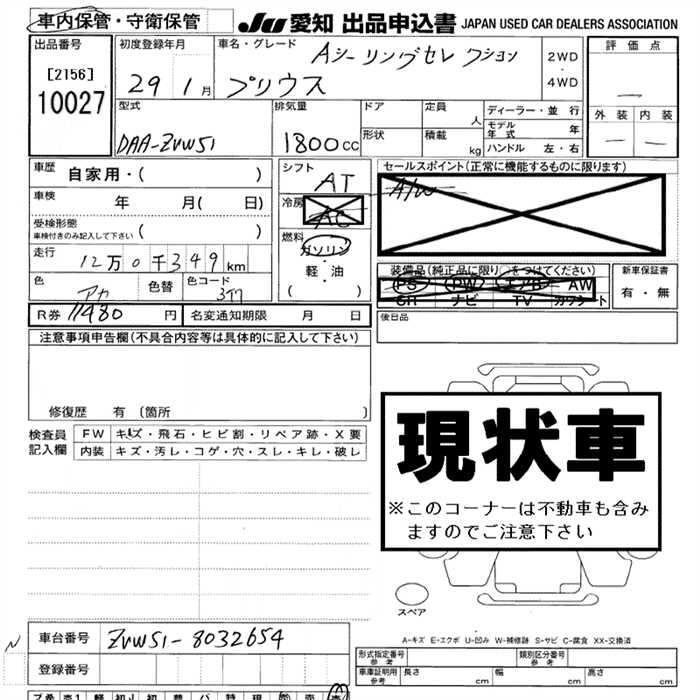 車内保管・守衛保管
JU 愛知 出品申込書 JAPAN USED CAR DEALERS ASSOCIATION
出品番号
[2156]
10027
初度登録年月
29 1月
車名・グレード
Aツーリングセレクション
プリウス
2WD
・
4WD
評価点
―
外装 内装
― ―
型式
DAA-ZVW51
排気量
1800cc
ドア
形状
定員 人
積載 kg
ディーラー・並行
モデル年式 年
ハンドル 左・右
車歴 自家用・( )
車検 年 月( 日)
受検形態
車検付きのみ記入して下さい ( )
走行
12万0千349km
色
アカ
色替
色コード
3T7
シフト
AT
冷房
AC
燃料
ガソリン
・
軽・油
( )
セールスポイント(正常に機能するものに限ります)
A/W
装備品(純正品に限り○をつけてください)
PS PW エアB AW
SR ナビ TV カワシート
新車保証書
有・無
R券 11480円
名変通知期限 月 日
後日品
注意事項申告欄(不具合内容等は具体的に記入して下さい)
修復歴 有(箇所 )
検査員記入欄
FW キズ・飛石・ヒビ割・リペア跡・X要
内装 キズ・汚レ・コゲ・穴・スレ・キレ・破レ
現状車
※このコーナーは不動車も含み
ますのでご注意下さい
スペア
A-キズ E-エクボ U-凹み W-補修跡 S-サビ C-腐食 XX-交換済
N
車台番号 ZVW51-8032654
登録番号
形式指定番号 参考
類別区分番号 参考
車庫証明用 参考
長さ cm
幅 cm
高さ cm